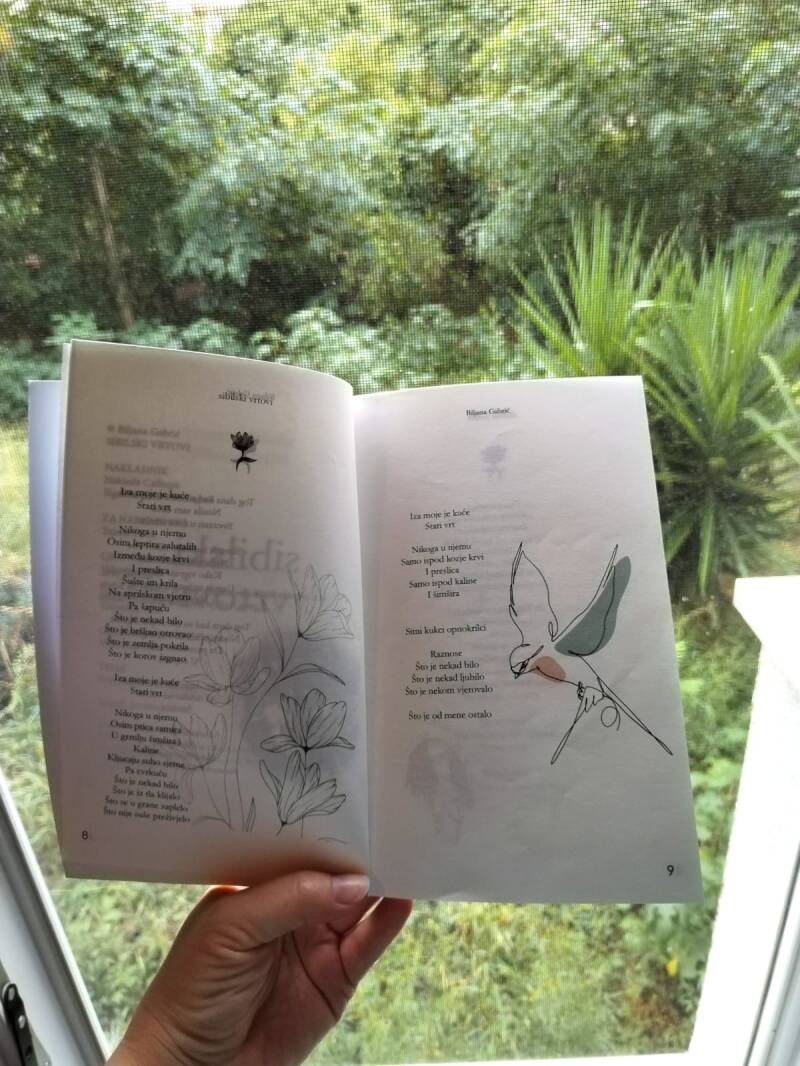 Sibilski vrtovi
Iza moje je kuće
Stari vrt
Nikoga u njemu
Osim leptira zalutalih
Između kozje krvi
I preslica
Šušte im krila
Na aprilskom vjetru
Pa šapuću
Što je nekad bilo
Što je bršljan otrovao
Što je zemlja pokrila
Što je korov izgnao
Iza moje je kuće
Stari vrt
Nikoga u njemu
Osim ptica samica
U grmlju šimšira
Kaline
Kljucaju suho sjeme
Pa cvrkuću
Što je nekad bilo
Što je iz tla klijalo
Što se u grane saplelo
Što nije suše preživjelo
8
Biljana Gabrić
Iza moje je kuće
Stari vrt
Nikoga u njemu
Samo ispod kozje krvi
I preslica
Samo ispod kaline
I šimšira
Sitni kukci opnokrilci
Raznose
Što je nekad bilo
Što je nekad ljubilo
Što je nekom vjerovalo
Što je od mene ostalo
9